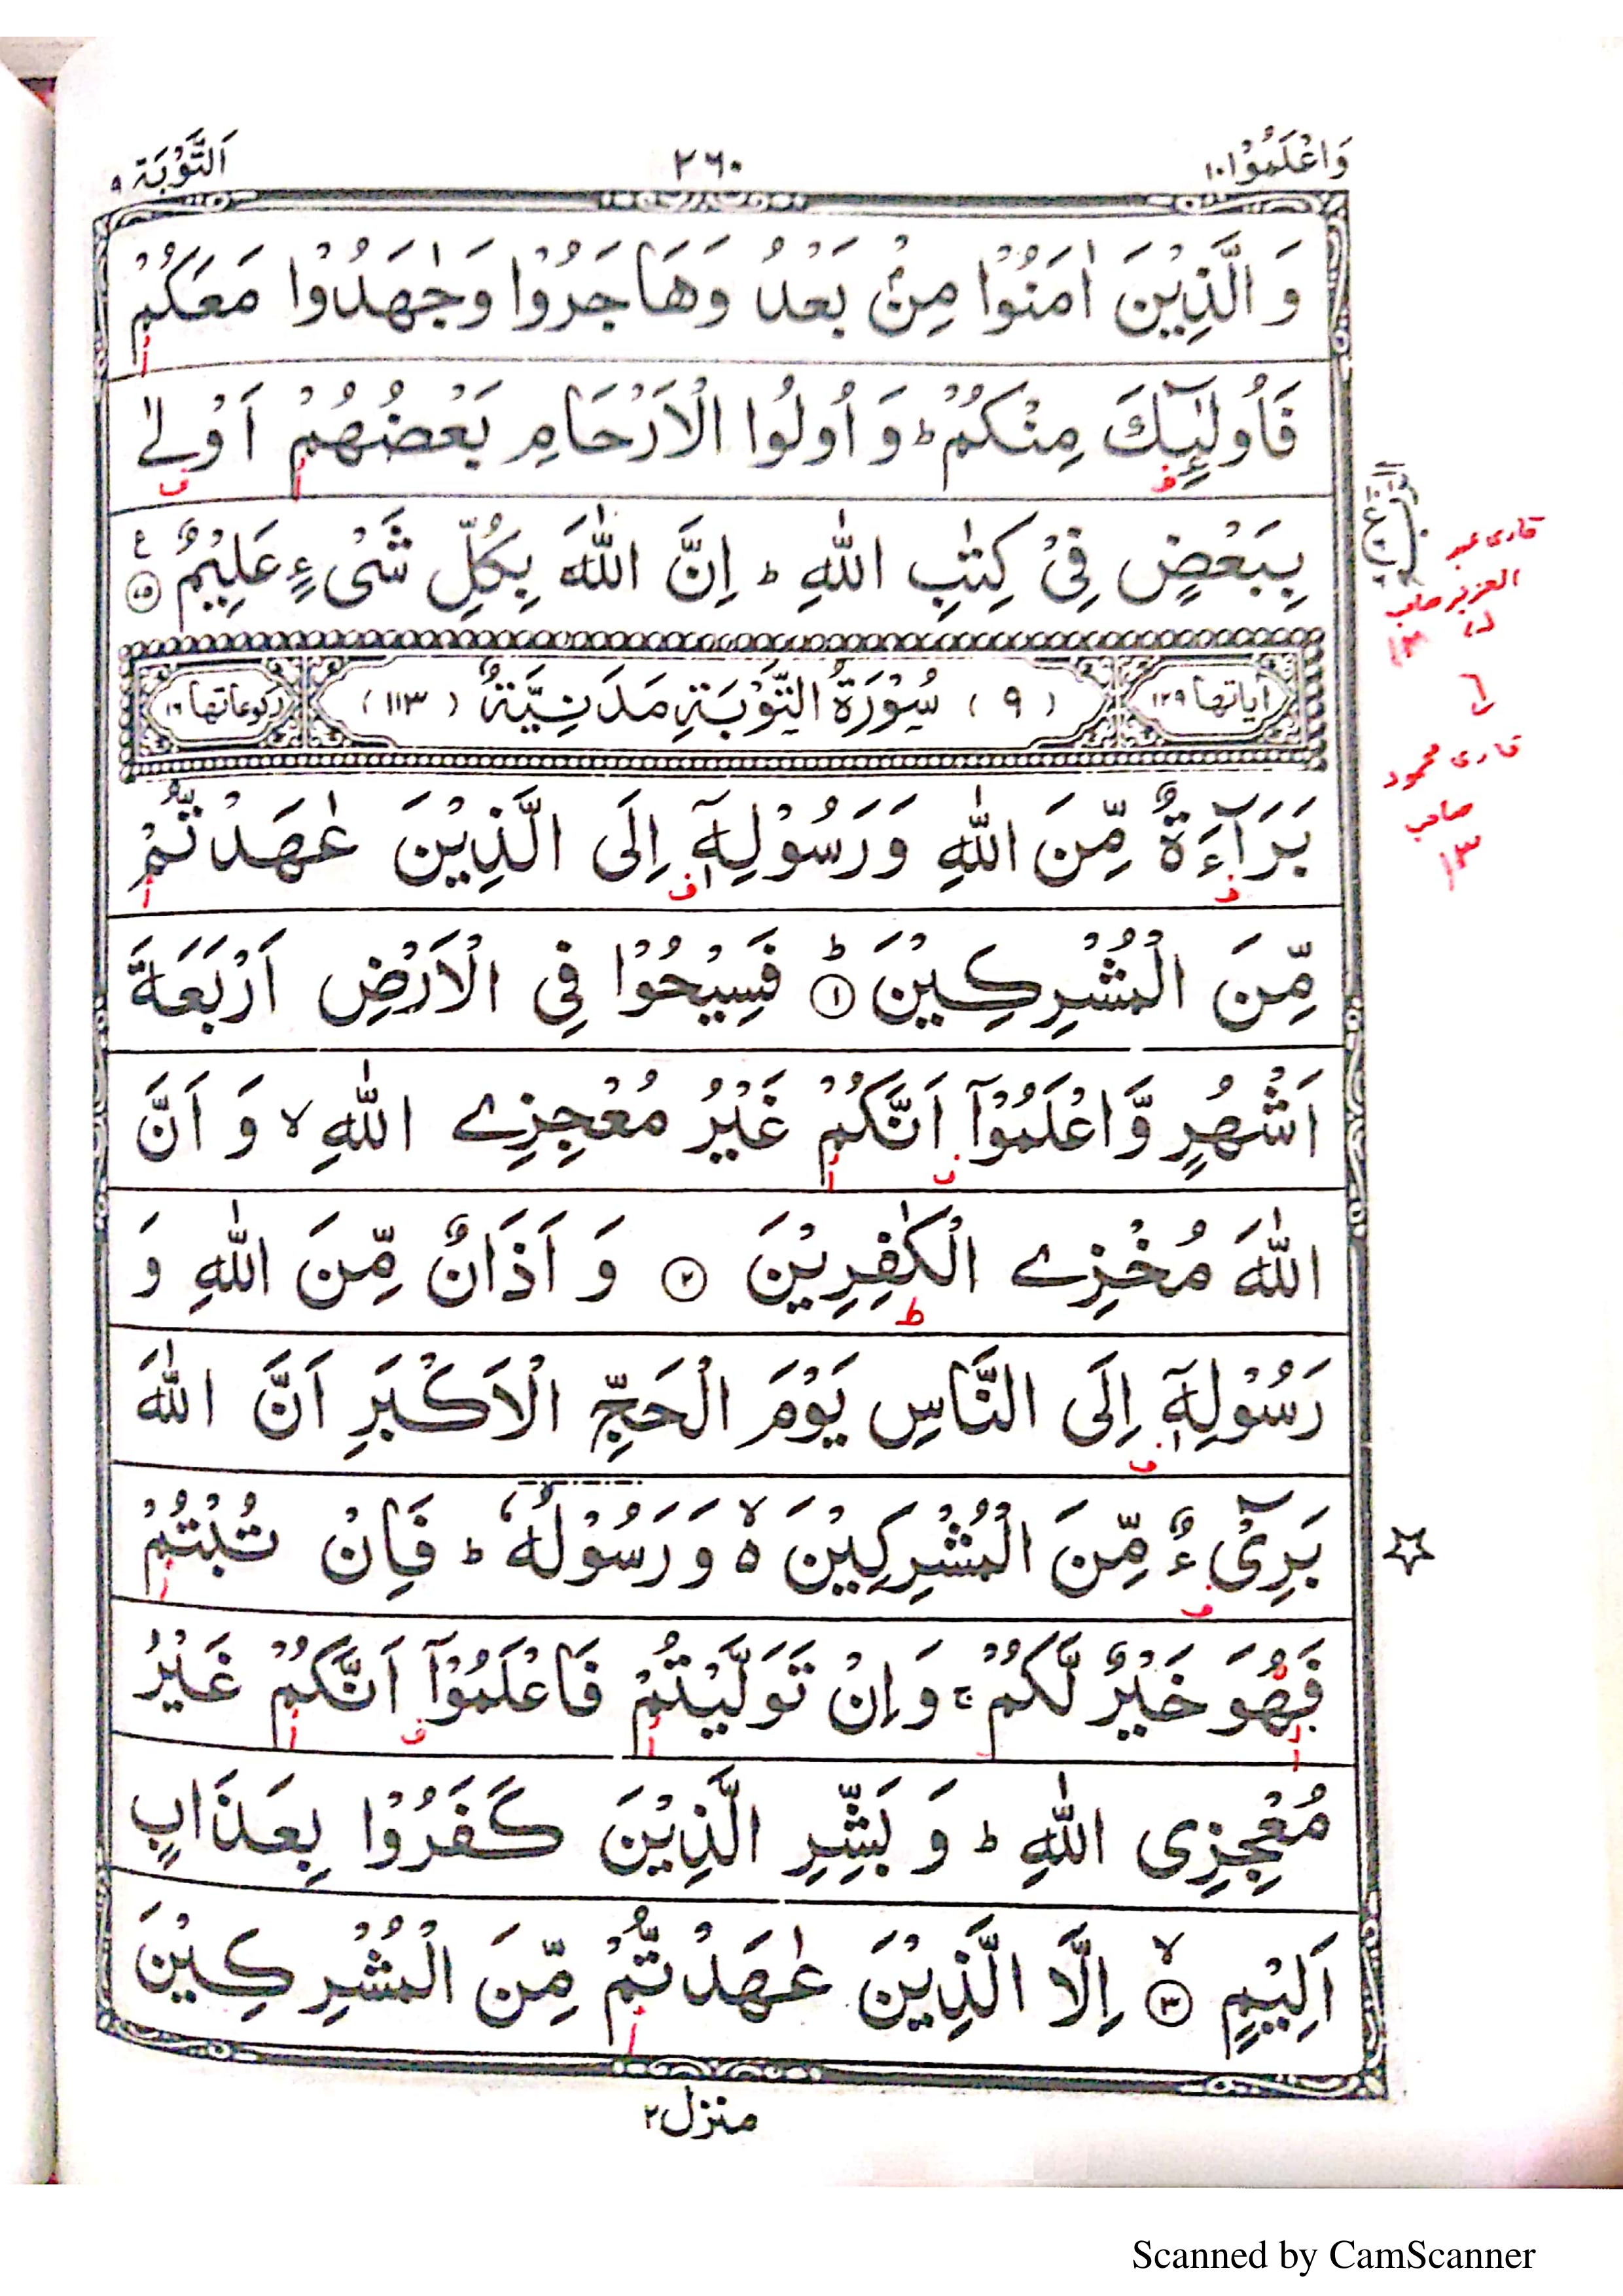 وَاعْلَمُوْا ١٠
٢٦٠
اَلتَّوْبَة ٩
وَ الَّذِيْنَ اٰمَنُوْا مِنْۢ بَعْدُ وَهَاجَرُوْا وَجٰهَدُوْا مَعَكُمْ
فَاُولٰٓئِكَ مِنْكُمْ ؕ وَ اُولُوا الْاَرْحَامِ بَعْضُهُمْ اَوْلٰى
بِبَعْضٍ فِىْ كِتٰبِ اللّٰهِ ؕ اِنَّ اللّٰهَ بِكُلِّ شَىْءٍ عَلِيْمٌ ﴿٧٥﴾ ع
اٰياتها ١٢٩ (٩) سُوْرَةُ التَّوْبَةِ مَدَنِيَّةٌ (١١٣) ركوعاتها ١٦
بَرَآءَةٌ مِّنَ اللّٰهِ وَرَسُوْلِهٖۤ اِلَى الَّذِيْنَ عٰهَدْتُّمْ
مِّنَ الْمُشْرِكِيْنَ ؕ ﴿١﴾ فَسِيْحُوْا فِى الْاَرْضِ اَرْبَعَةَ
اَشْهُرٍ وَّاعْلَمُوْۤا اَنَّكُمْ غَيْرُ مُعْجِزِے اللّٰهِ ۙ وَ اَنَّ
اللّٰهَ مُخْزِے الْكٰفِرِيْنَ ﴿٢﴾ وَ اَذَانٌ مِّنَ اللّٰهِ وَ
رَسُوْلِهٖۤ اِلَى النَّاسِ يَوْمَ الْحَجِّ الْاَكْبَرِ اَنَّ اللّٰهَ
بَرِىْٓءٌ مِّنَ الْمُشْرِكِيْنَ ۙ٥ وَ رَسُوْلُهٗ ؕ فَاِنْ تُبْتُمْ
فَهُوَ خَيْرٌ لَّكُمْ ۚ وَ اِنْ تَوَلَّيْتُمْ فَاعْلَمُوْۤا اَنَّكُمْ غَيْرُ
مُعْجِزِى اللّٰهِ ؕ وَ بَشِّرِ الَّذِيْنَ كَفَرُوْا بِعَذَابٍ
اَلِيْمٍ ۙ ﴿٣﴾ اِلَّا الَّذِيْنَ عٰهَدْتُّمْ مِّنَ الْمُشْرِكِيْنَ
منزل ٢
قاری عبد
العزیز صاحب
قاری محمود
صاحب
Scanned by CamScanner